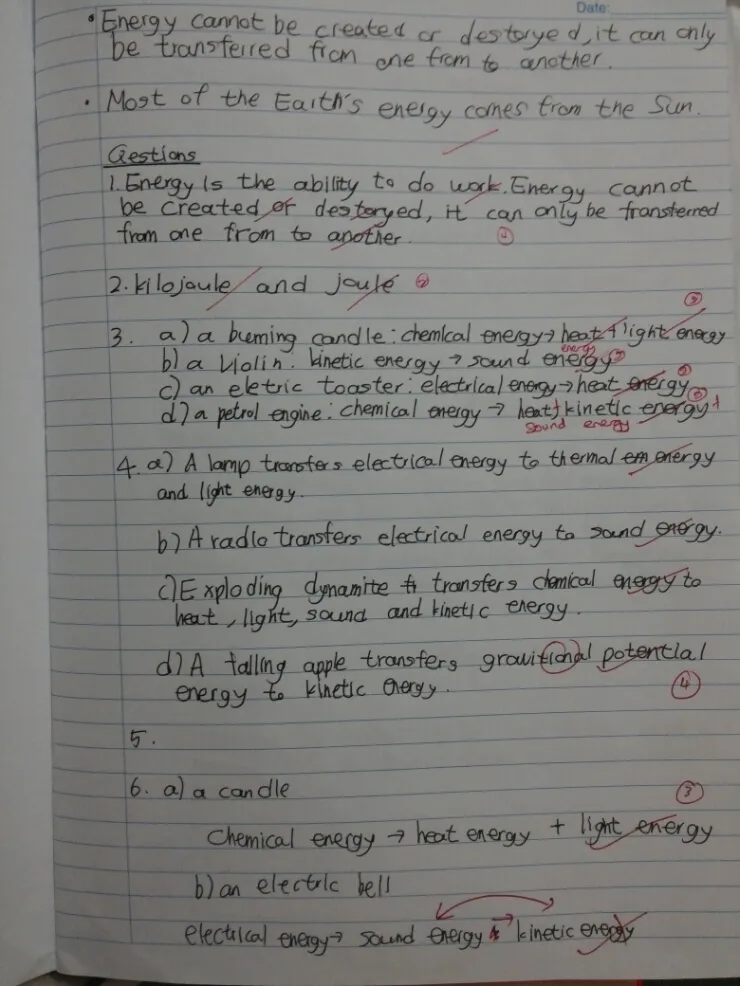 Date:
• Energy cannot be created or destoryed, it can only
be transferred from one from to another.
• Most of the Earth's energy comes from the Sun.
Qestions
1. Energy is the ability to do work. Energy cannot
be created or destoryed, it can only be transferred
from one from to another.
2. kilojoule and joule
3. a) a burning candle: chemical energy → heat + light energy
energy
b) a violin. kinetic energy → sound energy
c) an eletric toaster: electrical energy → heat energy
d) a petrol engine: chemical energy → heat + kinetic energy +
sound energy
4. a) A lamp transfers electrical energy to thermal energy
and light energy.
b) A radio transfers electrical energy to sound energy.
c) Exploding dynamite transfers chemical energy to
heat, light, sound and kinetic energy.
d) A falling apple transfers gravitional potential
energy to kinetic energy.
4
5.
6. a) a candle
3
Chemical energy → heat energy + light energy
b) an electric bell
electrical energy → sound energy → kinetic energy